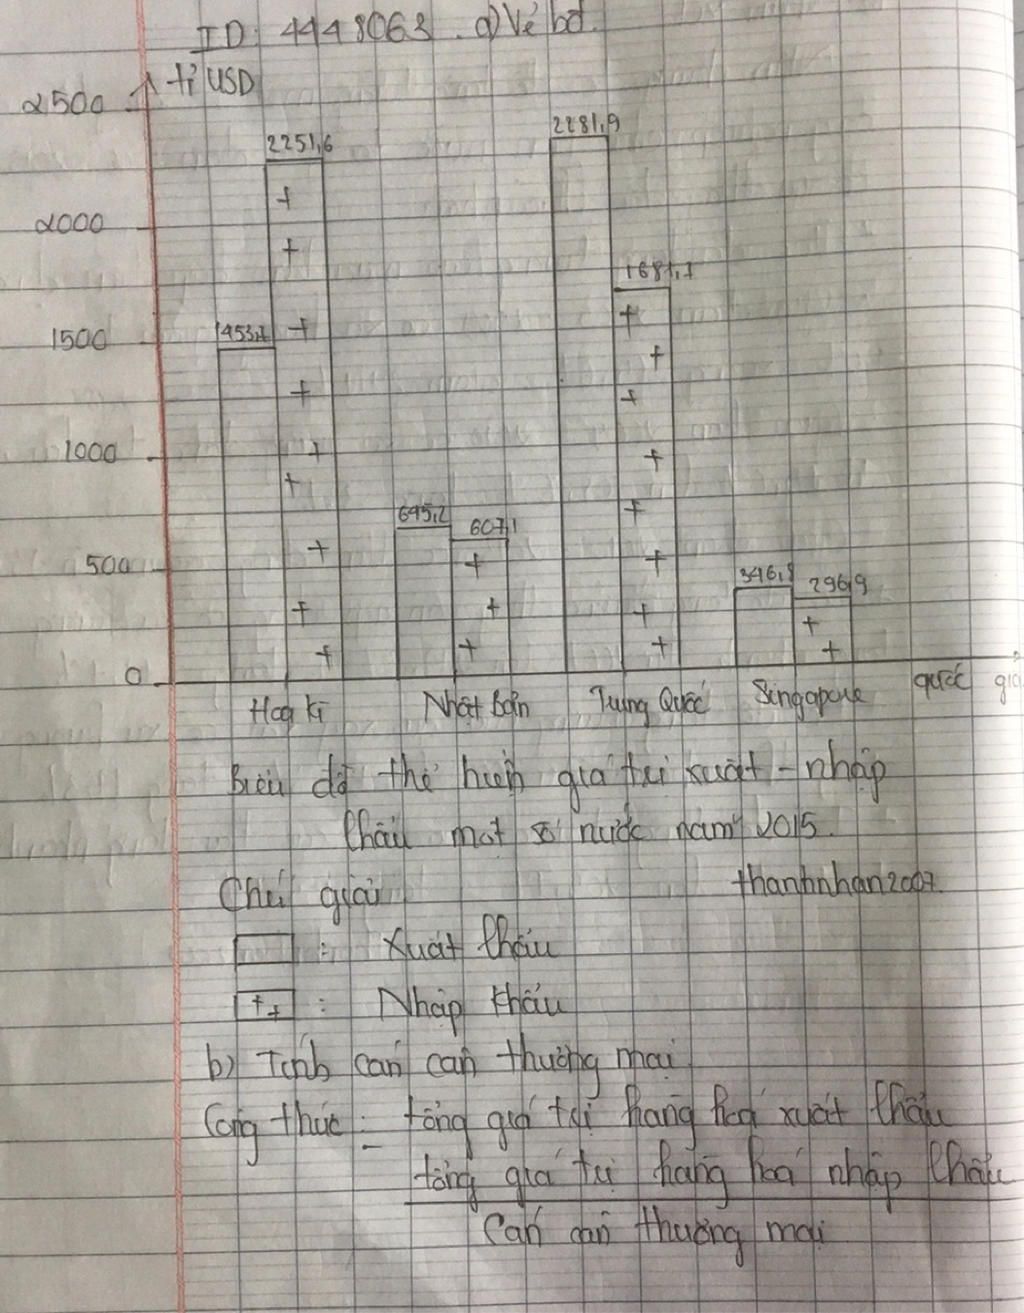 ID: 4448063. a) Vẽ bđ.
tỉ USD
2500
2281,9
2251,6
2000
1681,7
1500
1453,1
1000
695,2
607,1
500
346,8
296,9
0
Hoa kì Nhật bản Trung Quốc Singapore quốc gia
Biểu đồ thể hiện giá trị xuất - nhập
khẩu một số nước năm 2015.
Chú giải thanhnhan2007.
: Xuất khẩu
++ : Nhập khẩu
b) Tính cán cân thương mại
Công thức = tổng giá trị hàng hoá xuất khẩu
- tổng giá trị hàng hoá nhập khẩu
Cán cân thương mại